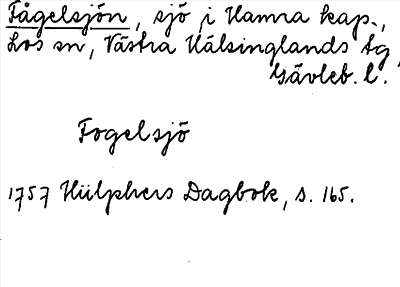 Fågelsjön, sjö i Hamra kap.,
Los sn, Västra Hälsinglands tg,
Gävleb. l.
Fogelsjö
1757 Hülphers Dagbok, s. 165.